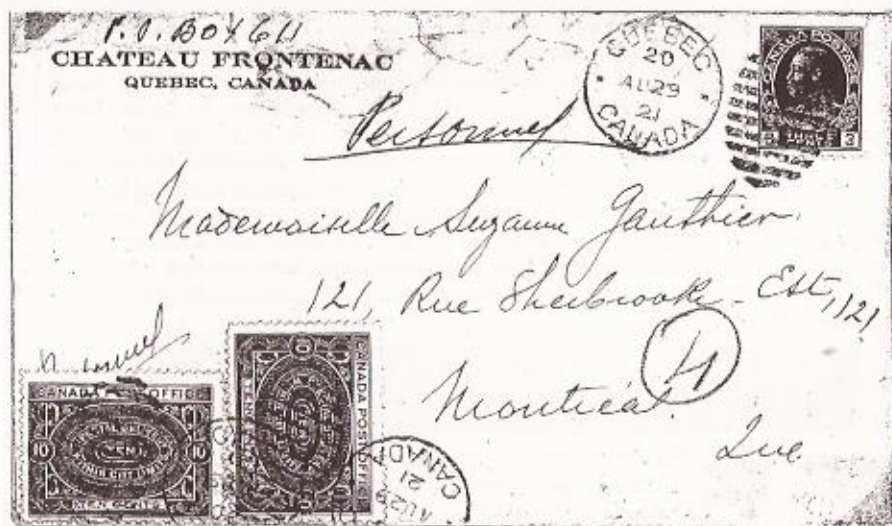 P.O. BOX 611
CHATEAU FRONTENAC
QUEBEC, CANADA
QUEBEC
20
AU 29
21
CANADA
CANADA POSTAGE
3 CENTS 3
Personnel
Mademoiselle Suzanne Gauthier
121, Rue Sherbrooke - Est, 121
4
Montréal
Que
Personnel
CANADA POST OFFICE
10 10
TEN CENTS
CANADA POST OFFICE
10
AU 29
21
CANADA